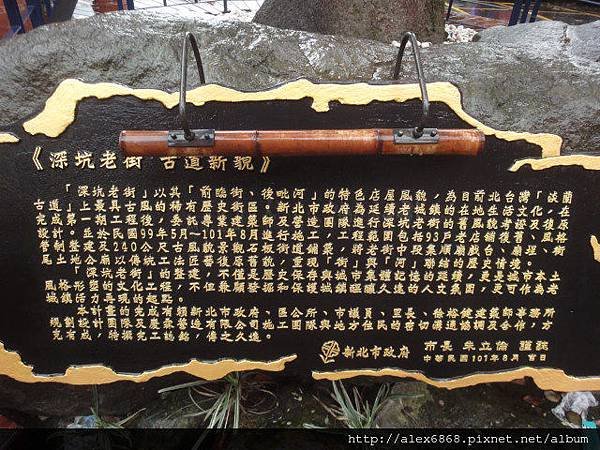 《深坑老街 古道新貌》
「深坑老街」以其「前臨街、後毗河」的特色店屋風貌，為目前北台灣「淡蘭
古道」上最具古風的稀有歷史街區。新北市政府為延續老城鎮的在地生活文化，在
完成第一期工程後，委託專業建築師及營造團隊進行深坑老街的舊風貌考證及復原
設計。並於民國99年5月~101年8月進行施工，工程範圍包括93戶老店舖復舊、風格
管制整建及240公尺古風貌景觀石板街道鋪築，將老街中段集順廟戲台、廟埕、街
尾土地公廟以傳統工法匠藝復原舊貌，重現「街」與「河」聯結的歷史情紗。
「深坑老街」的整建，不僅是歷史保存與城市集體記憶的延續，更是城市本土
風格形塑的文化工程，不但兼顧發掘和保護城鎮 久遠的人文氛圍，更可作為老
城鎮活力再現的起點。
本計畫的完成有賴新北市政府、區公所、市議員、里長、徐裕健建築師事務所
規劃設計團隊及慶 營造有限公司施工團隊與地方住民的密切溝通協調及合作，方
克有成，特撰完工誌銘，傳之久遠。
新北市政府 市長 朱立倫 謹誌
中華民國101年8月 吉日
http://alex6868.pixnet.net/album